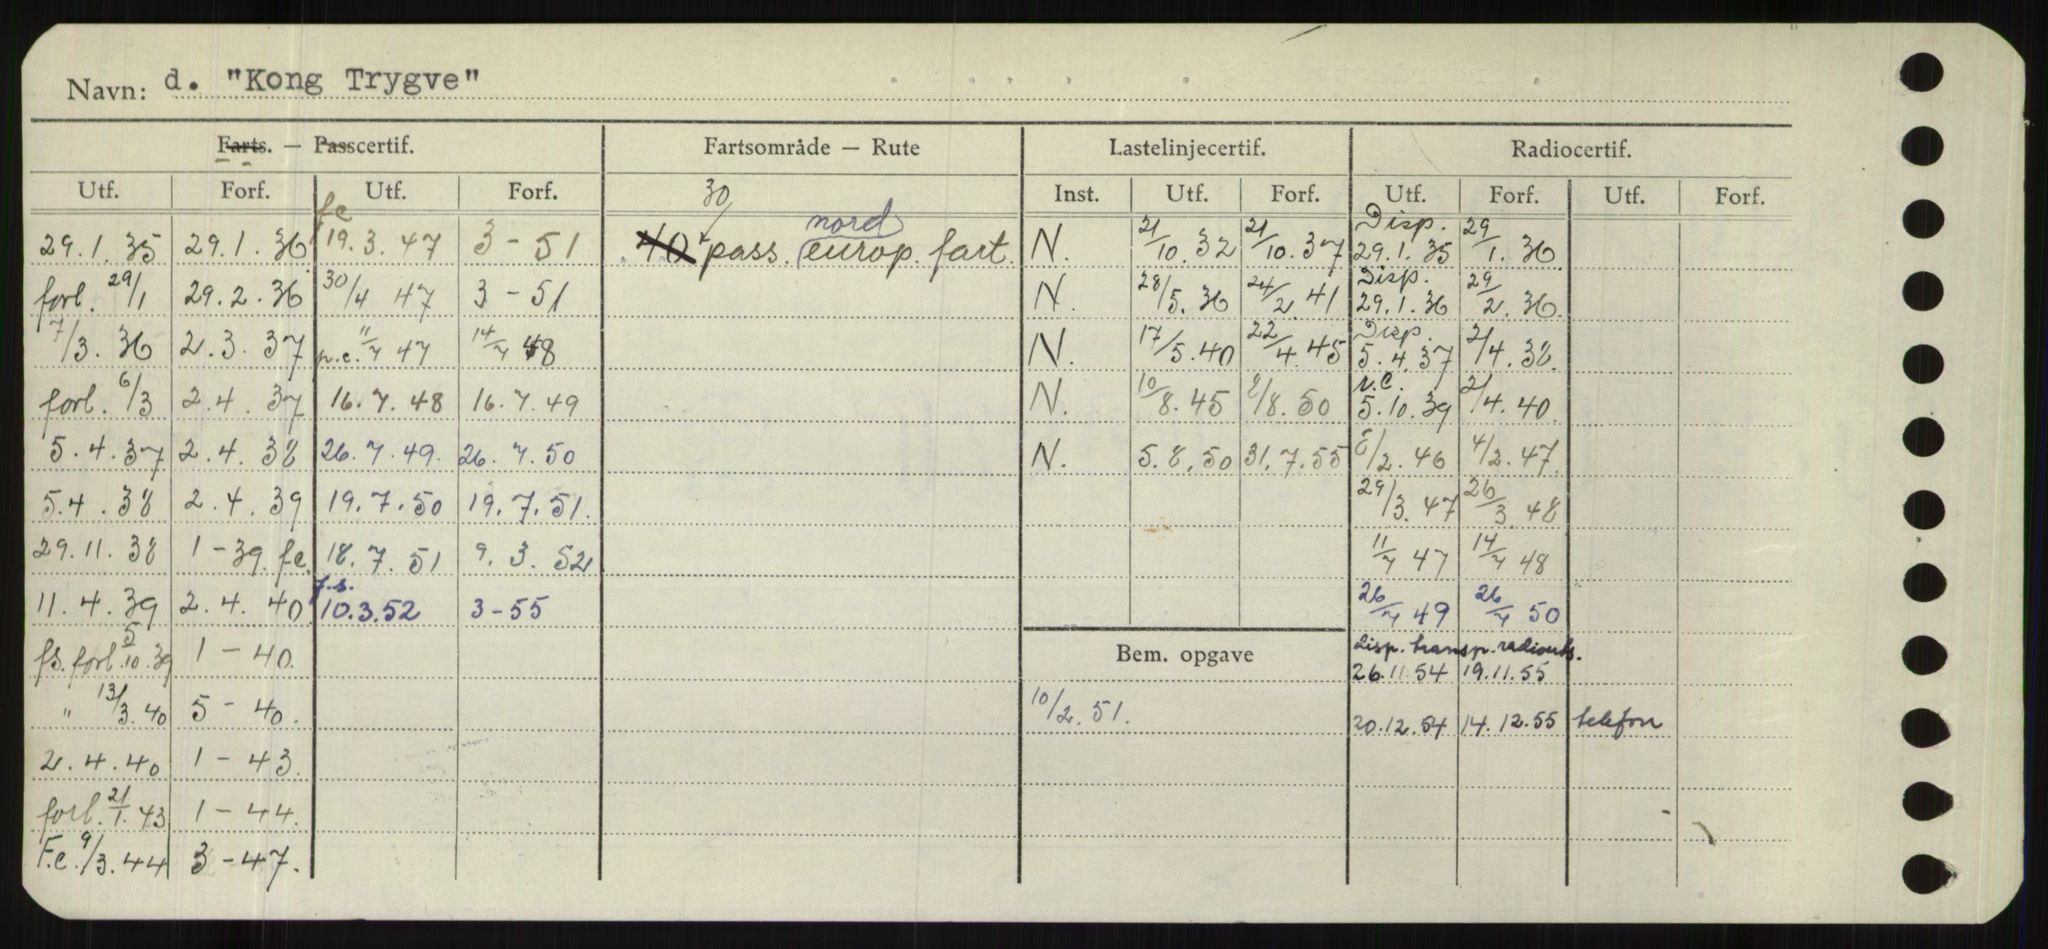 Navn: d. "Kong Trygve"
Farts. — Passcertif. Fartsområde — Rute Lastelinjecertif. Radiocertif.
Utf. Forf. Utf. Forf. 30 Inst. Utf. Forf. Utf. Forf. Utf. Forf.
fc nord Disp.
29.1.35 29.1.36 19.3.47 3-51 40 pass. europ. fart. N. 21/10.32 21/10.37 29.1.35 29/1.36
Disp.
forl. 29/1 29.2.36 30/4 47 3-51 N. 28/5.36 24/2.41 29.1.36 29/2.36
Disp.
7/3.36 2.3.37 p.c. 11/7 47 14/7 48 N. 17/5.40 22/4.45 5.4.37 2/4.38
r.c.
forl. 6/3 2.4.37 16.7.48 16.7.49 N. 10/8.45 8/8.50 5.10.39 2/4.40
5.4.37 2.4.38 26.7.49 26.7.50 N. 5.8.50 31.7.55 /2.46 4/2.47
5.4.38 2.4.39 19.7.50 19.7.51. 29/3.47 26/3.48
29.11.38 1-39 fc. 18.7.51 9.3.52 11/7 47 14/7 48
f.s.
11.4.39 2.4.40 10.3.52 3-55 26/7 49 26/7 50
fs. forl. 5/10.39 1-40. Bem. opgave disp. transp. radiouts.
26.11.54 19.11.55
" 13/3.40 5-40. 10/2.51. 20.12.54 14.12.55 telefon
2.4.40 1-43.
forl. 21/1.43 1-44.
F.c. 9/3.44 3-47.